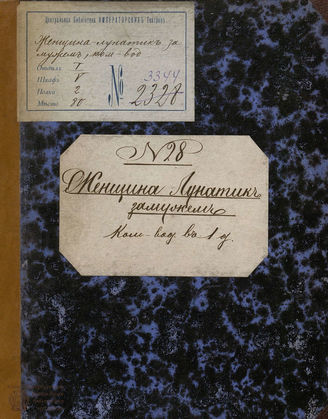 Центральная Библіотека ИМПЕРАТОРСКИХЪ Театровъ.
Женщина-лунатикъ за
мужемъ, ком-вод
Отдѣлъ I
Шкафъ V
Полка 2
Мѣсто 80
№
3344
2328
№ 98
Женщина Лунатикъ
замужемъ
Ком-вод. въ 1 д.